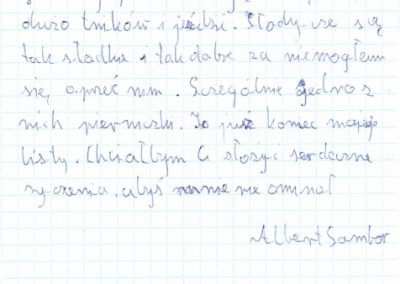 dużo trików i jeździ. Słodycze są
tak sładkie i tak dobre za niemogłem
się oprzeć nim. Szczególnie jedno z
nich pierniczki. To już koniec mojego
listy. Chciałbym Ci złożyć serdeczne
życzenia abyś mnie nie ominoł
Albert Sambor